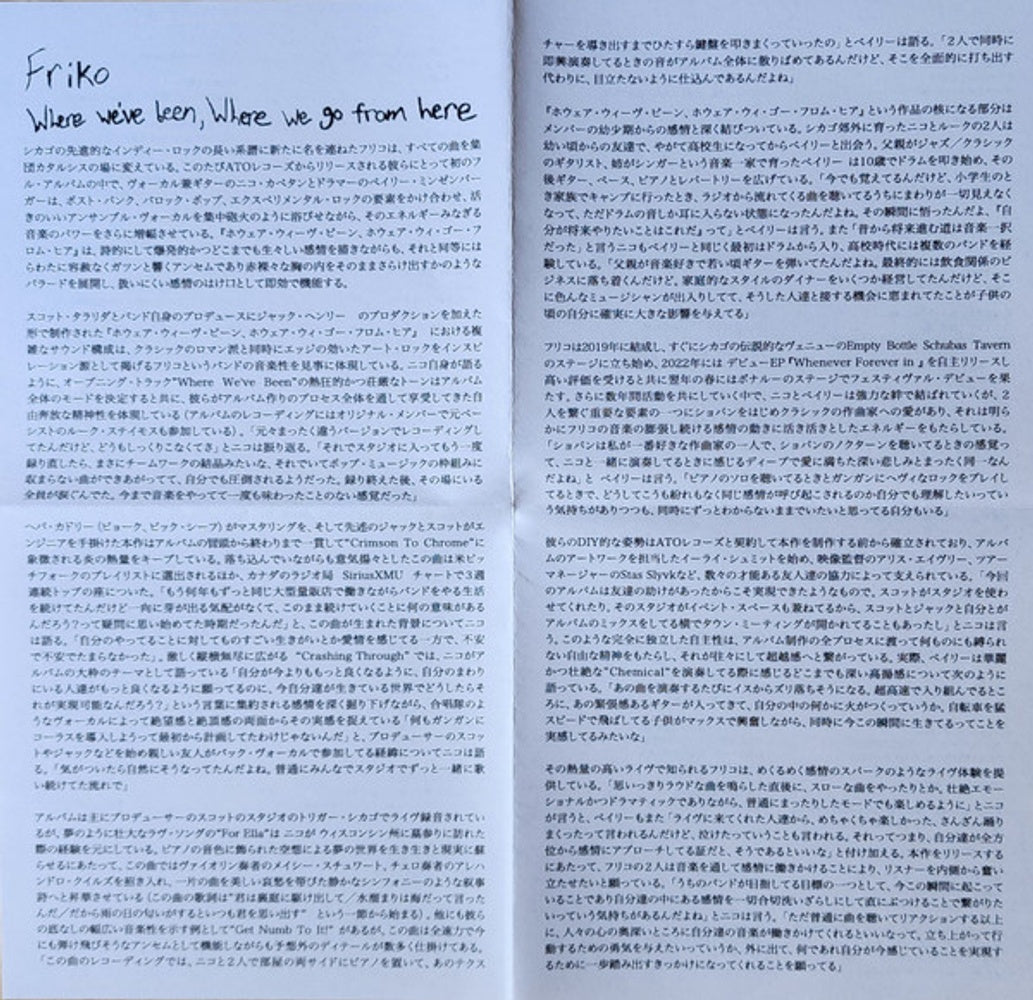 Friko
Where we've been, Where we go from here
シカゴの先進的なインディー・ロックの長い系譜に新たに名を連ねたフリコは、すべての曲を集
団カタルシスの場に変えている。このたびATOレコーズからリリースされる彼らにとって初のフ
ル・アルバムの中で、ヴォーカル兼ギターのニコ・カペタンとドラマーのベイリー・ミンゼンバー
ガーは、ポスト・パンク、バロック・ポップ、エクスペリメンタル・ロックの要素をかけ合わせ、活
きのいいアンサンブル・ヴォーカルを集中砲火のように浴びせながら、そのエネルギーみなぎる
音楽のパワーをさらに増幅させている。『ホウェア・ウィーヴ・ビーン、ホウェア・ウィ・ゴー・フ
ロム・ヒア』は、詩的にして爆発的かつどこまでも生々しい感情を描きながらも、それと同等には
らわたに容赦なくガツンと響くアンセムであり赤裸々な胸の内をそのままさらけ出すかのような
バラードを展開し、扱いにくい感情のはけ口として即効で機能する。
スコット・タラリダとバンド自身のプロデュースにジャック・ヘンリー のプロダクションを加えた
形で制作された『ホウェア・ウィーヴ・ビーン、ホウェア・ウィ・ゴー・フロム・ヒア』 における複
雑なサウンド構成は、クラシックのロマン派と同時にエッジの効いたアート・ロックをインスピ
レーション源として掲げるフリコというバンドの音楽性を見事に体現している。ニコ自身が語る
ように、オープニング・トラック"Where We've Been"の熱狂的かつ荘厳なトーンはアルバム
全体のモードを決定すると共に、彼らがアルバム作りのプロセス全体を通して享受してきた自
由奔放な精神性を体現している（アルバムのレコーディングにはオリジナル・メンバーで元ベー
シストのルーク・ステイモスも参加している）。「元々まったく違うバージョンでレコーディングし
てたんだけど、どうもしっくりこなくてさ」とニコは振り返る。「それでスタジオに入ってもう一度
録り直したら、まさにチームワークの結晶みたいな、それでいてポップ・ミュージックの枠組みに
収まらない曲ができあがってて、自分でも圧倒されるようだった。録り終えた後、その場にいる
全員が涙ぐんでた。今まで音楽をやってて一度も味わったことのない感覚だった」
ヘバ・カドリー（ビョーク、ビック・シーフ）がマスタリングを、そして先述のジャックとスコットがエ
ンジニアを手掛けた本作はアルバムの冒頭から終わりまで一貫して"Crimson To Chrome"に
象徴される炎の熱量をキープしている。落ち込んでいながらも意気揚々としたこの曲は米ピッ
チフォークのプレイリストに選出されるほか、カナダのラジオ局 SiriusXMU チャートで3週
連続トップの座についた。「もう何年もずっと同じ大型量販店で働きながらバンドをやる生活
を続けてたんだけど一向に芽が出る気配がなくて、このまま続けていくことに何の意味があ
んだろう？って疑問に思い始めてた時期だったんだ」と、この曲が生まれた背景についてニコ
は語る。「自分のやってることに対してものすごい生きがいとか愛情を感じてる一方で、不安
で不安でたまらなかった」。激しく縦横無尽に広がる "Crashing Through" では、ニコがア
ルバムの大枠のテーマとして語っている「自分が今よりももっと良くなるように、自分のまわり
にいる人達がもっと良くなるように願ってるのに、今自分達が生きている世界でどうしたらそ
れが実現可能なんだろう？」という言葉に集約される感情を深く掘り下げながら、合唱隊のよ
うなヴォーカルによって絶望感と絶頂感の両面からその実感を捉えている「何もガンガンに
コーラスを導入しようって最初から計画してたわけじゃないんだ」と、プロデューサーのスコッ
トやジャックなどを始め親しい友人がバック・ヴォーカルで参加してる経緯についてニコは語
る。「気がついたら自然にそうなってたんだよね。普通にみんなでスタジオでずっと一緒に歌
い続けてた流れで」
アルバムは主にプロデューサーのスコットのスタジオのトリガー・シカゴでライヴ録音されてい
るが、夢のように壮大なラヴ・ソングの"For Ella"は ニコが ウィスコンシン州に墓参りに訪れた
際の経験を元にしている。ピアノの音色に飾られた空想による夢の世界を生き生きと現実に蘇
らせるにあたって、この曲ではヴァイオリン奏者のメイシー・スチュワート、チェロ奏者のアレハ
ンドロ・クイルズを招き入れ、一片の曲を美しい哀愁を帯びた静かなシンフォニーのような叙事
詩へと昇華させている（この曲の歌詞は"君は裏庭に駆け出して／水溜まりは海だって言った
んだ／だから雨の日の匂いがするといつも君を思い出す" という一節から始まる）。他にも彼ら
の底なしの幅広い音楽性を示す例として"Get Numb To It!" があるが、この曲は全速力で今
にも弾け飛びそうなアンセムとして機能しながらも予想外のディテールが数多く仕掛けてある。
「この曲のレコーディングでは、ニコと2人で部屋の両サイドにピアノを置いて、あのテクス
チャーを導き出すまでひたすら鍵盤を叩きまくっていったの」とベイリーは語る。「2人で同時に
即興演奏してるときの音がアルバム全体に散りばめてあるんだけど、そこを全面的に打ち出す
代わりに、目立たないように仕込んであるんだよね」
『ホウェア・ウィーヴ・ビーン、ホウェア・ウィ・ゴー・フロム・ヒア』という作品の核になる部分は
メンバーの幼少期からの感情と深く結びついている。シカゴ郊外に育ったニコとルークの2人は
幼い頃からの友達で、やがて高校生になってからベイリーと出会う。父親がジャズ／クラシック
のギタリスト、姉がシンガーという音楽一家で育ったベイリー は10歳でドラムを叩き始め、その
後ギター、ベース、ピアノとレパートリーを広げている。「今でも覚えてるんだけど、小学生のと
き家族でキャンプに行ったとき、ラジオから流れてくる曲を聴いてるうちにまわりが一切見えなく
なって、ただドラムの音しか耳に入らない状態になったんだよね。その瞬間に悟ったんだよ、『自
分が将来やりたいことはこれだ』って」とベイリーは言う。また「昔から将来進む道は音楽一択
だった」と言うニコもベイリーと同じく最初はドラムから入り、高校時代には複数のバンドを経
験している。「父親が音楽好きで若い頃ギターを弾いてたんだよね。最終的には飲食関係のビ
ジネスに落ち着くんだけど。家庭的なスタイルのダイナーをいくつか経営してたんだけど、そこ
に色んなミュージシャンが出入りしてて、そうした人達と接する機会に恵まれてたことが子供の
頃の自分に確実に大きな影響を与えてる」
フリコは2019年に結成し、すぐにシカゴの伝説的なヴェニューのEmpty Bottle Schubas Tavern
のステージに立ち始め、2022年には デビューEP『Whenever Forever in 』を自主リリースし
高い評価を受けると共に翌年の春にはボナルーのステージでフェスティヴァル・デビューを果
たす。さらに数年間活動を共にしていく中で、ニコとベイリーは強力な絆で結ばれていくが、2
人を繋ぐ重要な要素の一つにショパンをはじめクラシックの作曲家への愛があり、それは明ら
かにフリコの音楽の膨張し続ける感情の動きに活き活きとしたエネルギーをもたらしている。
「ショパンは私が一番好きな作曲家の一人で、ショパンのノクターンを聴いてるときの感覚っ
て、ニコと一緒に演奏してるときに感じるディープで愛に満ちた深い悲しみとまったく同一なん
だよね」と ベイリーは言う、「ピアノのソロを聴いてるときとガンガンにヘヴィなロックをプレイし
てるときで、どうしてこうも紛れもなく同じ感情が呼び起こされるのか自分でも理解したいってい
う気持ちがありつつも、同時にずっとわからないままでいたいと思ってる自分もいる」
彼らのDIY的な姿勢はATOレコーズと契約して本作を制作する前から確立されており、アルバ
ムのアートワークを担当したイーライ・シュミットを始め、映像監督のアリス・エイヴリー、ツアー
マネージャーのStas Slyvkなど、数々の才能ある友人達の協力によって支えられている。「今回
のアルバムは友達の助けがあったからこそ実現できたようなもので。スコットがスタジオを使わ
せてくれたり。そのスタジオがイベント・スペースも兼ねてるから、スコットとジャックと自分とが
アルバムのミックスをしてる横でタウン・ミーティングが開かれてることもあったし」とニコは言
う。このような完全に独立した自主性は、アルバム制作の全プロセスに渡って何ものにも縛られ
ない自由な精神をもたらし、それが往々にして超越感へと繋がっている。実際、ベイリーは華麗
かつ壮絶な"Chemical"を演奏してる際に感じるどこまでも深い高揚感について次のように
語っている。「あの曲を演奏するたびにイスからズリ落ちそうになる。超高速で入り組んでるとこ
ろに、あの緊張感あるギターが入ってきて、自分の中の何かに火がつくっていうか。自転車を猛
スピードで飛ばしてる子供がマックスで興奮しながら、同時に今この瞬間に生きてるってことを
実感してるみたいな」
その熱量の高いライヴで知られるフリコは、めくるめく感情のスパークのようなライヴ体験を提
供している。「思いっきりラウドな曲を鳴らした直後に、スローな曲をやったりとか。壮絶エモー
ショナルかつドラマティックでありながら、普通にまったりしたモードでも楽しめるように」とニコ
が言うと、ベイリーもまた「ライヴに来てくれた人達から、めちゃくちゃ楽しかった、さんざん踊り
まくったって言われるんだけど、泣けたっていうことも言われる。それってつまり、自分達が全方
位から感情にアプローチしてる証だと、そうであるといいな」と付け加える。本作をリリースする
にあたって、フリコの2人は音楽を通して感情に働きかけることにより、リスナーを内側から奮い
立たせたいと願っている。「うちのバンドが目指してる目標の一つとして、今この瞬間に起こって
いることであり自分達の中にある感情を一切合切洗いざらしにして直にぶつけることで繋がりた
いっていう気持ちがあるんだよね」とニコは言う。「ただ普通に曲を聴いてリアクションする以上
に、人々の心の奥深いところに自分達の音楽が働きかけてくれるといいなって。立ち上がって行
動するための勇気を与えたいっていうか、外に出て、何であれ自分が今感じていることを実現す
るために一歩踏み出すきっかけになってくれることを願ってる」